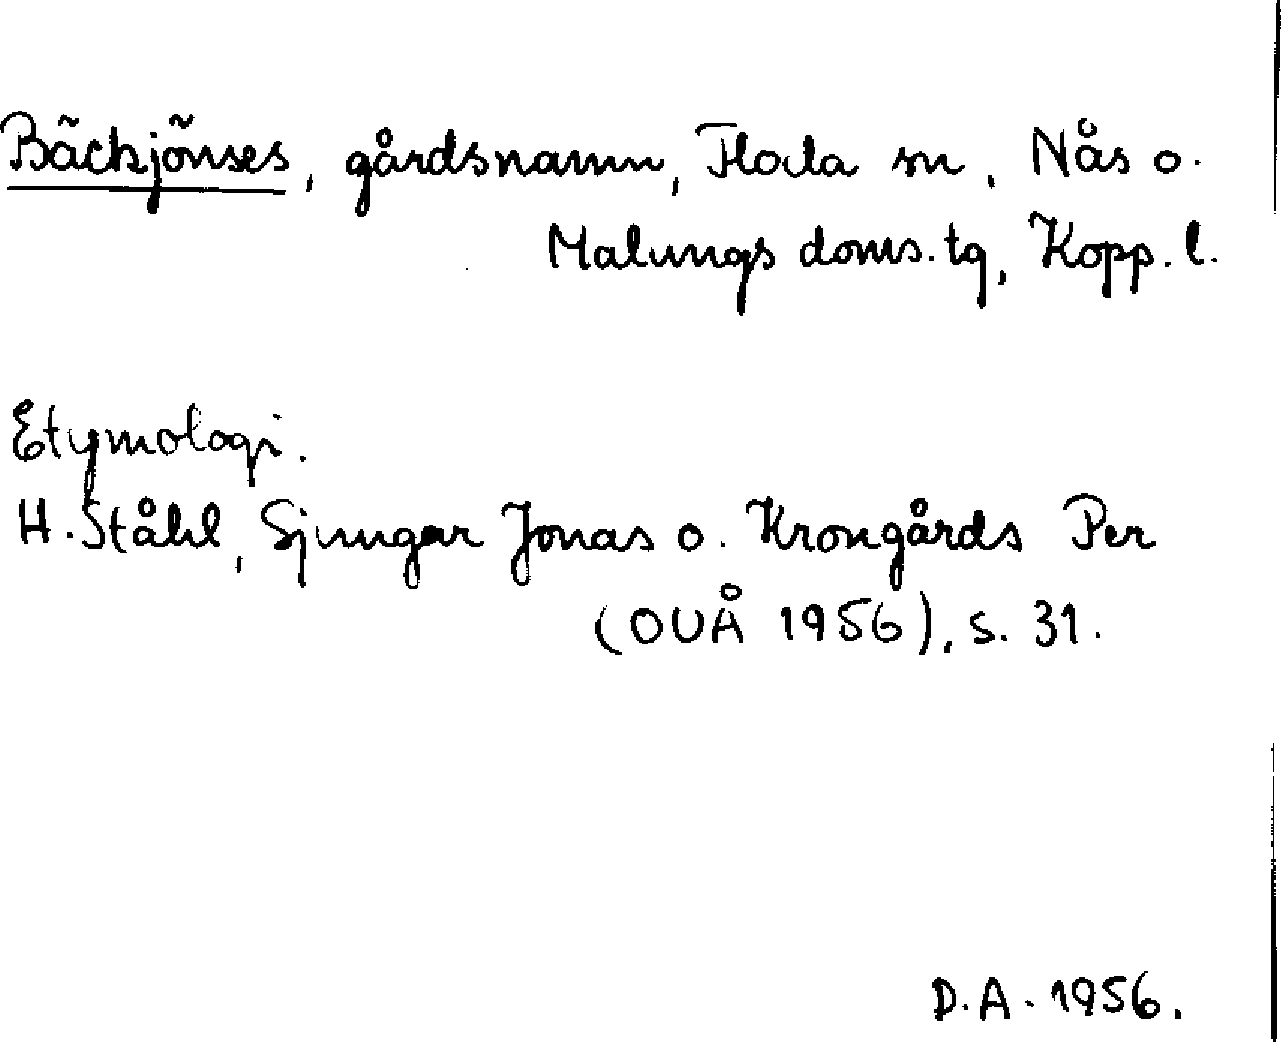 Bäckjönses, gårdsnamn, Floda sn, Nås o.
Malungs doms. tg, Kopp. l.
Etymologi.
H. Ståhl, Sjungar Jonas o. Krongårds Per
(OUÅ 1956), s. 31.
D.A. 1956.